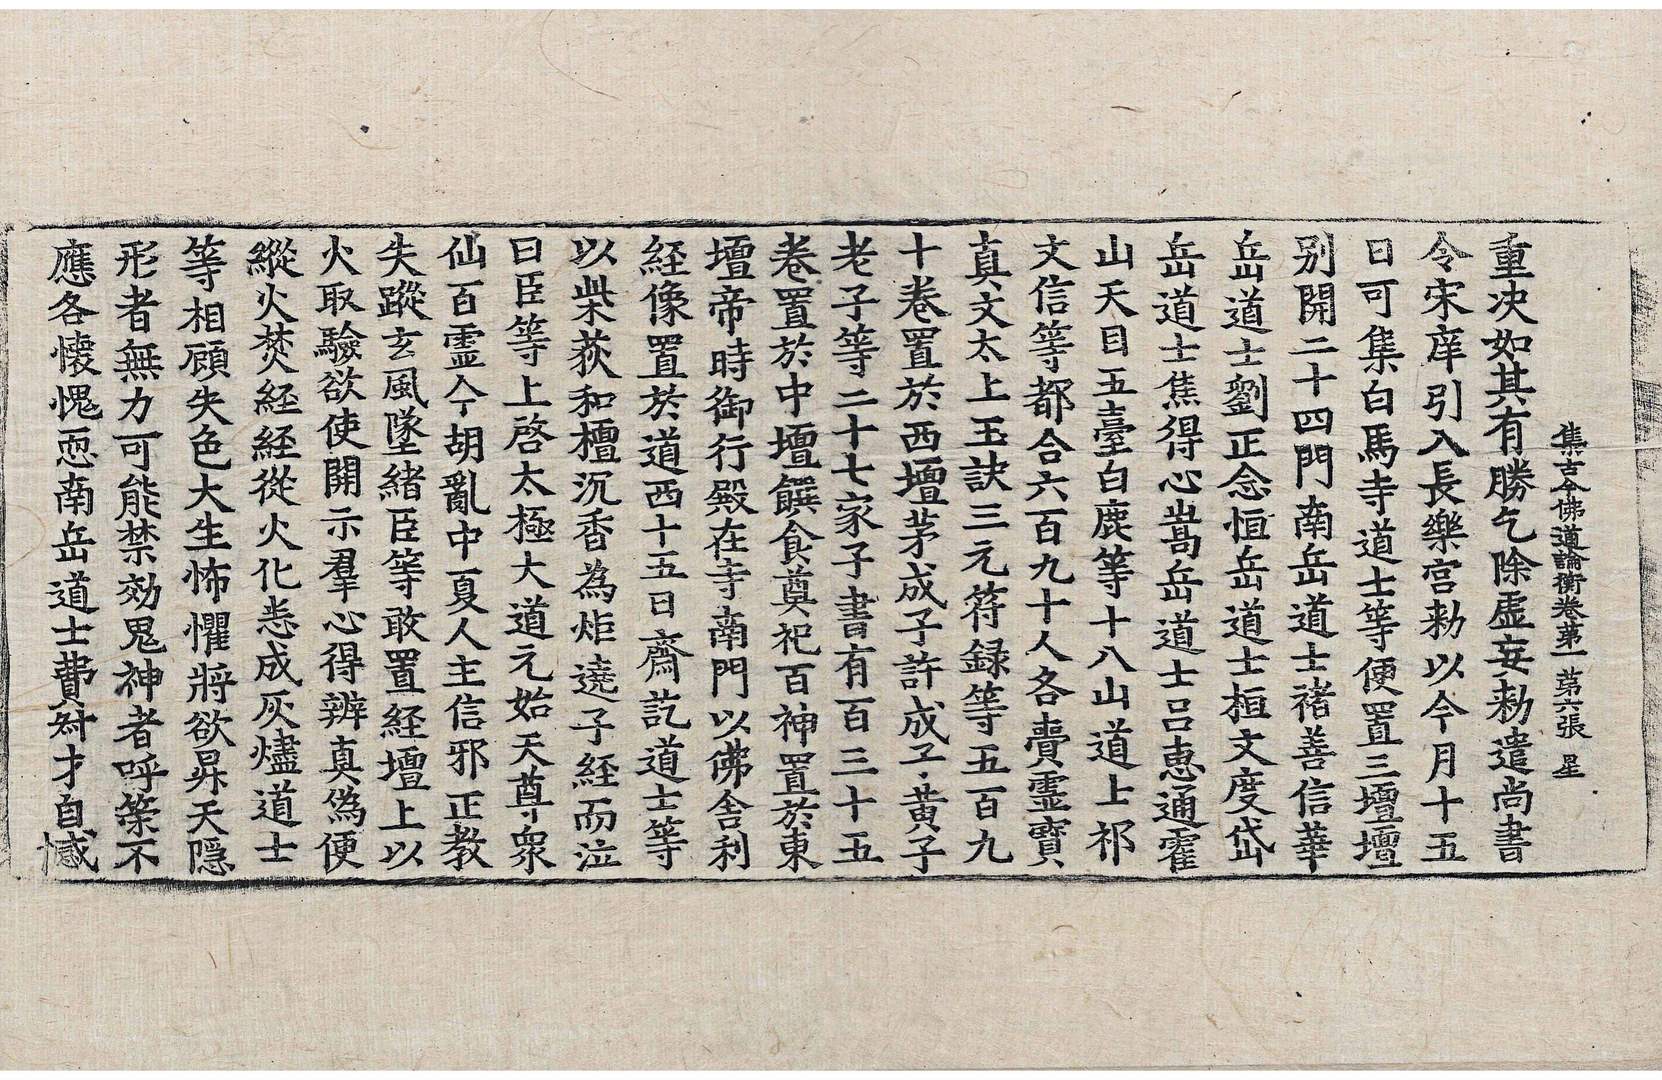 集古今佛道論衡卷第一 第六張 星
重次如其有勝乞除虛妄勅遣尚書
令宋庠引入長樂宫勅以今月十五
日可集白馬寺道士等便置三壇壇
別開二十四門南岳道士褚善信華
岳道士劉正念恒岳道士桓文度岱
岳道士焦得心嵩岳道士吕惠通霍
山天目五臺白鹿等十八山道士祁
文信等都合六百九十人各賷霊寶
真文太上玉訣三元符録等五百九
十卷置於西壇茅成子許成子黄子
老子等二十七家子書有百三十五
卷置於中壇饌食奠祀百神置於東
壇帝時御行殿在寺南門以佛舎利
経像置於道西十五日齋訖道士等
以柴荻和檀沉香為炬遶子経而泣
曰臣等上啓太極大道元始天尊衆
仙百霊今胡亂中夏人主信邪正教
失蹤玄風墜緒臣等敢置経壇上以
火取驗欲使開示羣心得辨真偽便
縱火焚経経從火化悉成灰燼道士
等相顧失色大生怖懼將欲昇天隠
形者無力可能禁効鬼神者呼策不
應各懷愧恧南岳道士費叔才自憾